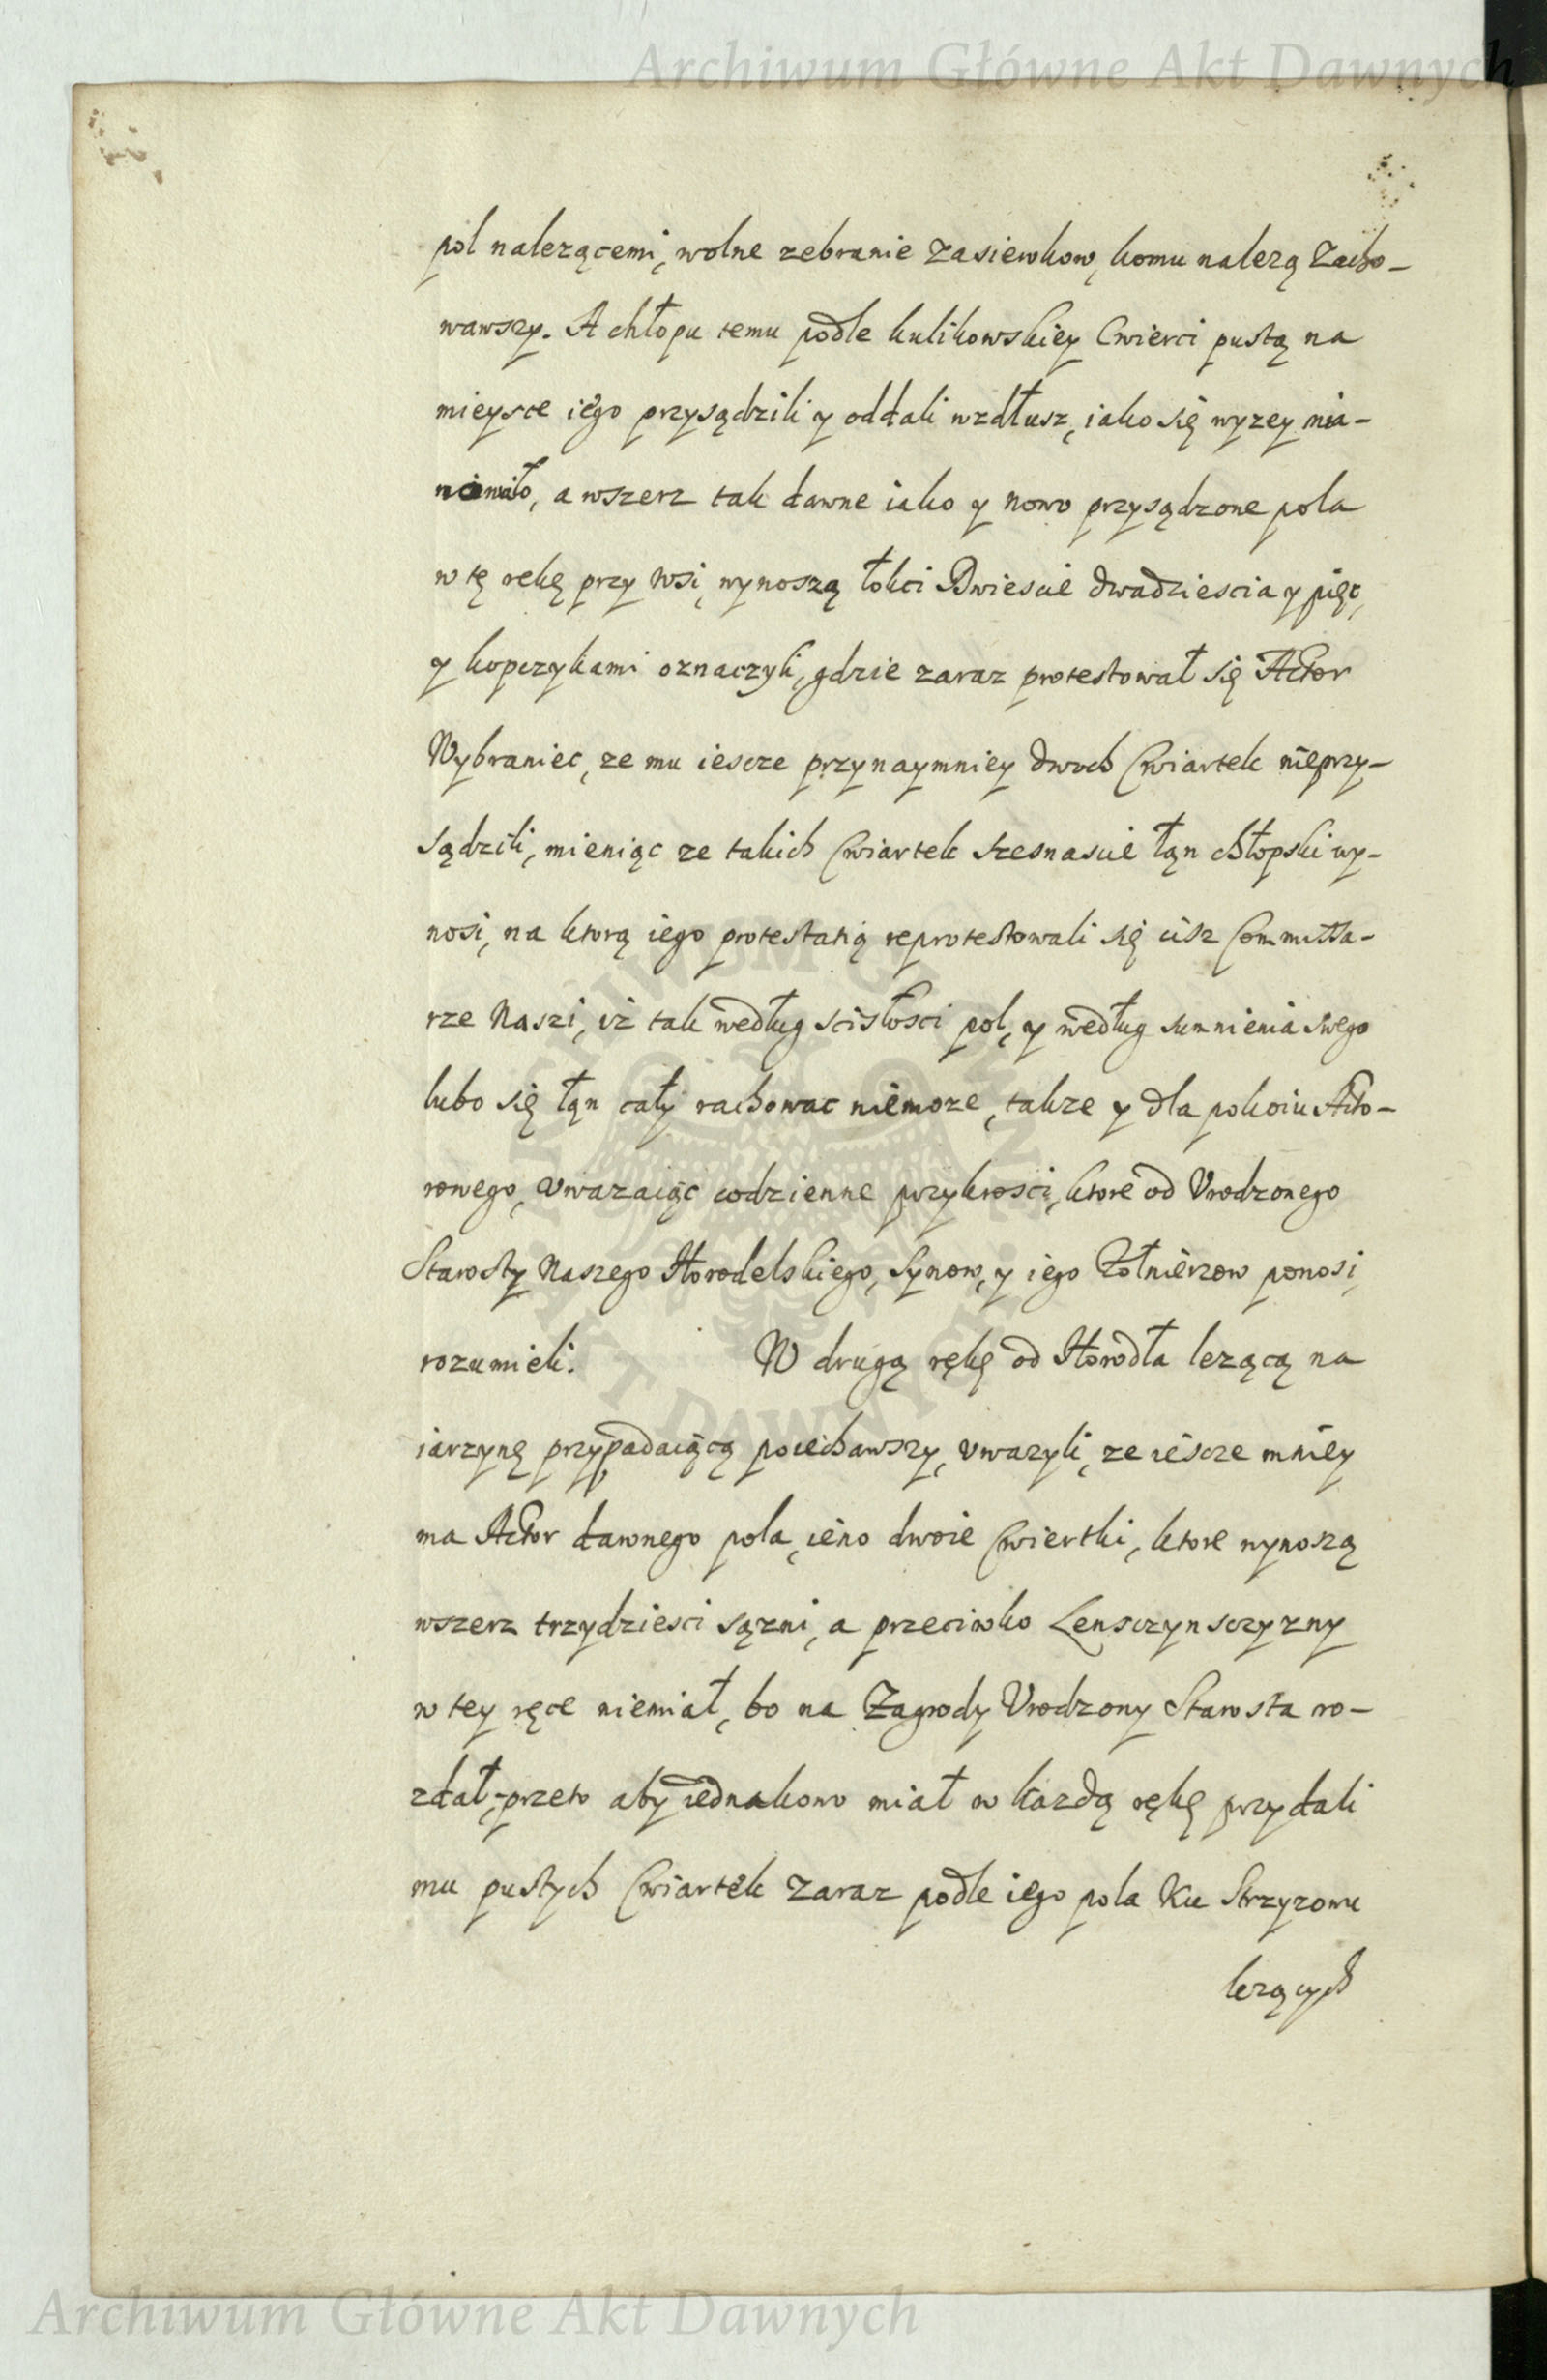 Archiwum Główne Akt Dawnych
pol nalezącemi, wolne zebranie Zasiewkow, komu nalezą Zacho-
wawszy. A chłopu temu podle kulikowskiey Cwierci pustą na
mieysce iego przysądzili y oddali wzdłusz, iako się wyzey mia-
nowało, a wszerz tak dawne iako y nowo przysądzone pola
w tę rekę przy wsi, wynoszą łokci Dwiescie dwadziescia y pięc,
y kopczykami oznaczyli, gdzie zaraz protestował się Actor
Wybraniec, ze mu iescze przynaymniey dwuch Cwiartek nieprzy-
sądzili, mieniąc ze takich Cwiartek szesnascie łąn chłopski wy-
nosi, na ktorą iego protestatią reprotestowali się cisz Commissa-
rze Naszi, iż tak według scisłosci pol, y według sumnienia swego
lubo się łąn cały rachowac niemoze, takze y dla pokoiu Acto-
rowego, Vwazaiąc codzienne przykrosci, ktore od Vrodzonego
Starosty Naszego Horodelskiego, Synow, y iego Zołnierzow ponosi,
rozumieli. W drugą rękę od Horodła lezącą na
iarzynę przypadaiącą poiechawszy, vwazyli, ze iescze mniey
ma Actor dawnego pola, ieno dwoie Cwiertki, ktore wynoszą
wszerz trzydziesci sązni, a przeciwko Lensczynsczyzny
w tey ręce niemiał, bo na Zagrody Vrodzony Starosta ro-
zdał, przeto aby iednakowo miał w kazdą rękę przydali
mu pustych Cwiartek zaraz podle iego pola Ku Strzyzowu
lezących
Archiwum Główne Akt Dawnych